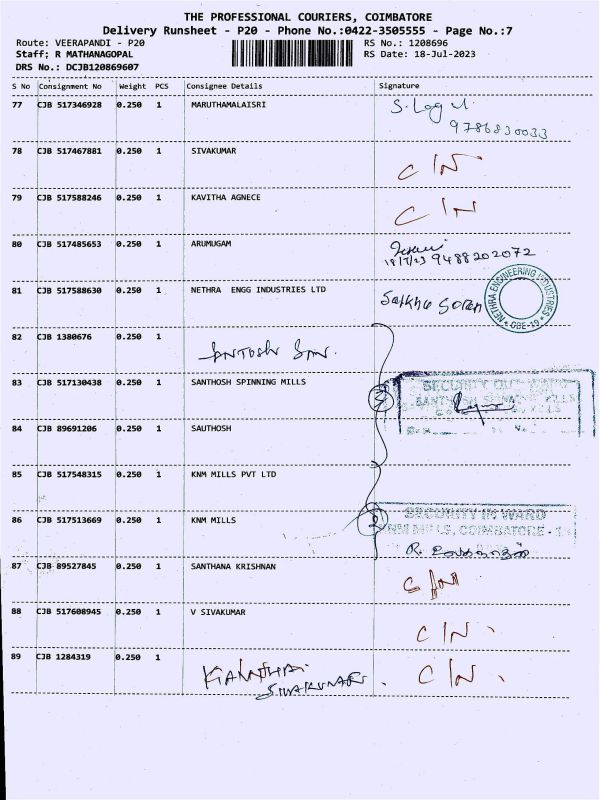 THE PROFESSIONAL COURIERS, COIMBATORE
Delivery Runsheet - P20 - Phone No.:0422-3505555 - Page No.:7
Route: VEERAPANDI - P20 RS No.: 1208696
Staff; R MATHANAGOPAL RS Date: 18-Jul-2023
DRS No.: DCJB120869607
S No Consignment No Weight PCS Consignee Details Signature
77 CJB 517346928 0.250 1 MARUTHAMALAISRI
9786830033
78 CJB 517467881 0.250 1 SIVAKUMAR C/N
79 CJB 517588246 0.250 1 KAVITHA AGNECE C/N
80 CJB 517485653 0.250 1 ARUMUGAM
18/7/23 9488202072
81 CJB 517588630 0.250 1 NETHRA ENGG INDUSTRIES LTD
NETHRA ENGINEERING INDUSTRIES
* CBE-19 *
82 CJB 1380676 0.250 1
Santosh
83 CJB 517130438 0.250 1 SANTHOSH SPINNING MILLS
SANTHOSH
84 CJB 89691206 0.250 1 SAUTHOSH
85 CJB 517548315 0.250 1 KNM MILLS PVT LTD
86 CJB 517513669 0.250 1 KNM MILLS
2
SECURITY IN WARD
KNM MILLS, COIMBATORE - 
R.
87 CJB 89527845 0.250 1 SANTHANA KRISHNAN C/N
88 CJB 517608945 0.250 1 V SIVAKUMAR C/N.
89 CJB 1284319 0.250 1 C/N.
SIVAKUMAR